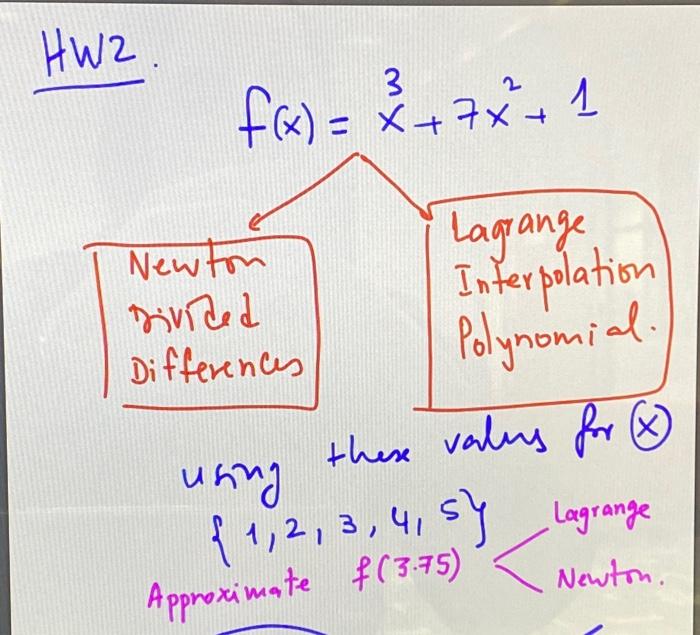 HW2.
f(x) = x³ + 7x² + 1
Newton
Divided
Differences
Lagrange
Interpolation
Polynomial.
using these values for (x)
{ 1, 2, 3, 4, 5 }
Approximate f(3.75)
Lagrange
Newton.